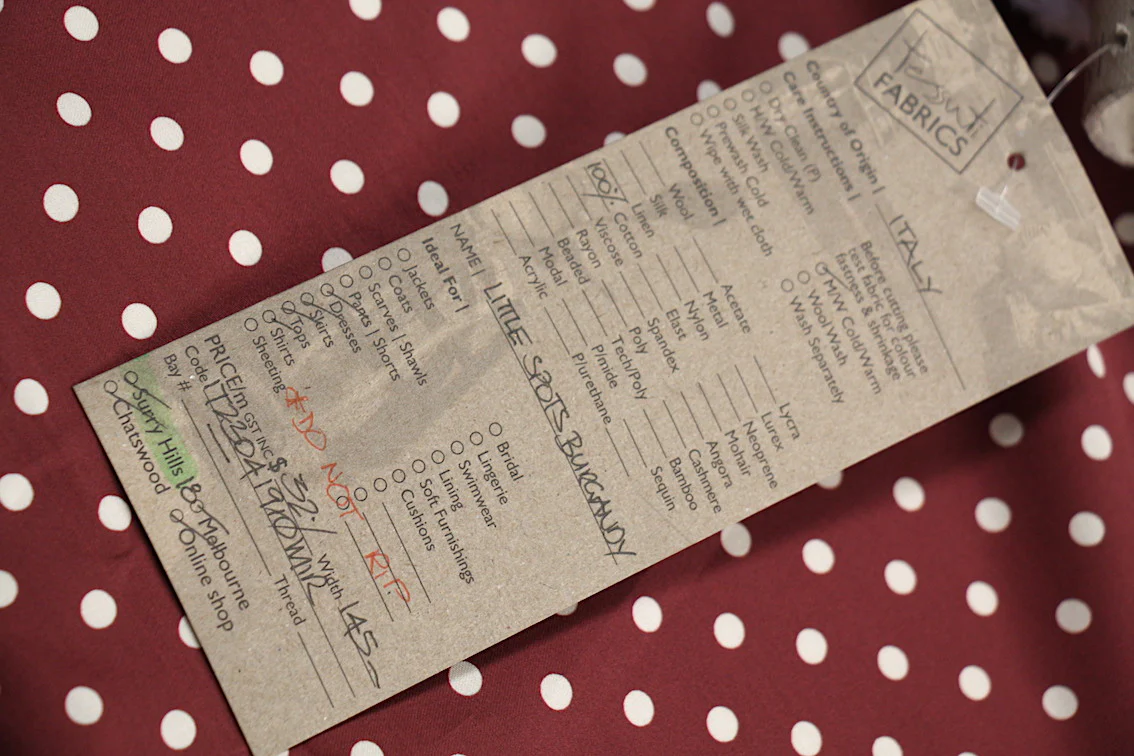 Tessuti
FABRICS
Country of Origin | ITALY
Care Instructions |
Before cutting please
test fabric for colour
fastness & shrinkage
Dry Clean (P)
H/W Cold/Warm
Silk Wash
Prewash Cold
Wipe with wet cloth
M/W Cold/Warm
Wool Wash
Wash Separately
Composition |
Wool
Silk
Linen
100% Cotton
Viscose
Rayon
Beaded
Modal
Acrylic
Acetate
Metal
Nylon
Elast
Spandex
Poly
Tech/Poly
P/mide
P/urethane
Lycra
Lurex
Neoprene
Mohair
Angora
Cashmere
Bamboo
Sequin
NAME | LITTLE SPOTS BURGANDY
Ideal For |
Jackets
Coats
Scarves | Shawls
Pants | Shorts
Dresses
Skirts
Tops
Shirts
Sheeting
Bridal
Lingerie
Swimwear
Lining
Soft Furnishings
Cushions
*DO NOT RIP
PRICE/m GST INC $ 32.- Width 145-
Code
Bay #
Thread
Surry Hills
Melbourne
Chatswood
Online shop